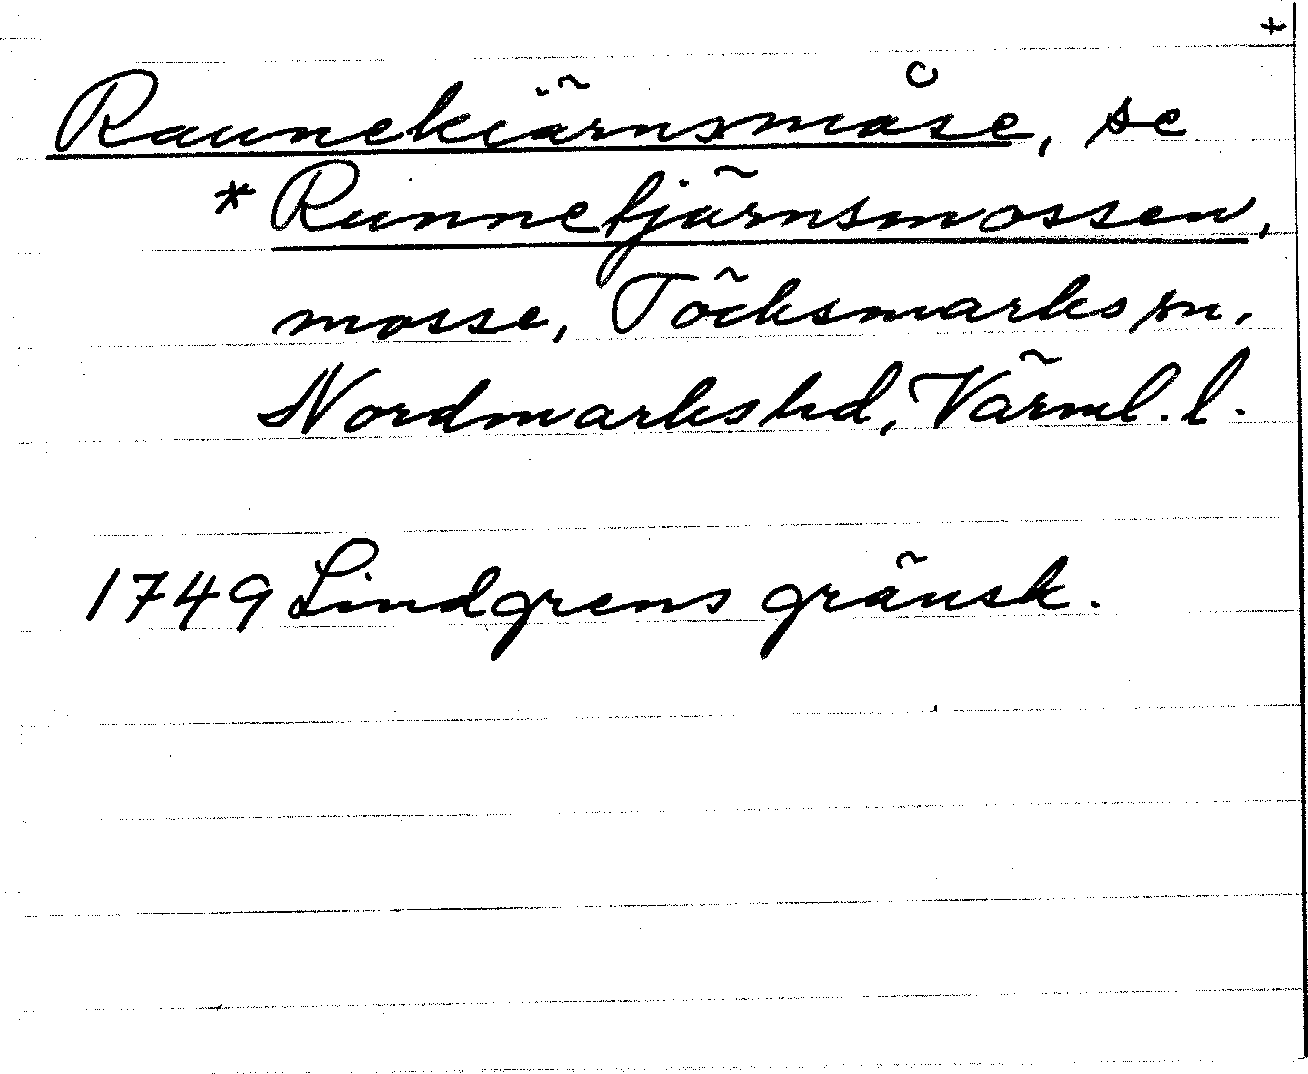 t
Raunekiärnsmåse, se
* Runnetjärnsmossen,
mosse, Töcksmarks sn,
Nordmarks hd, Värml. l.
1749 Lindgrens gränsk.